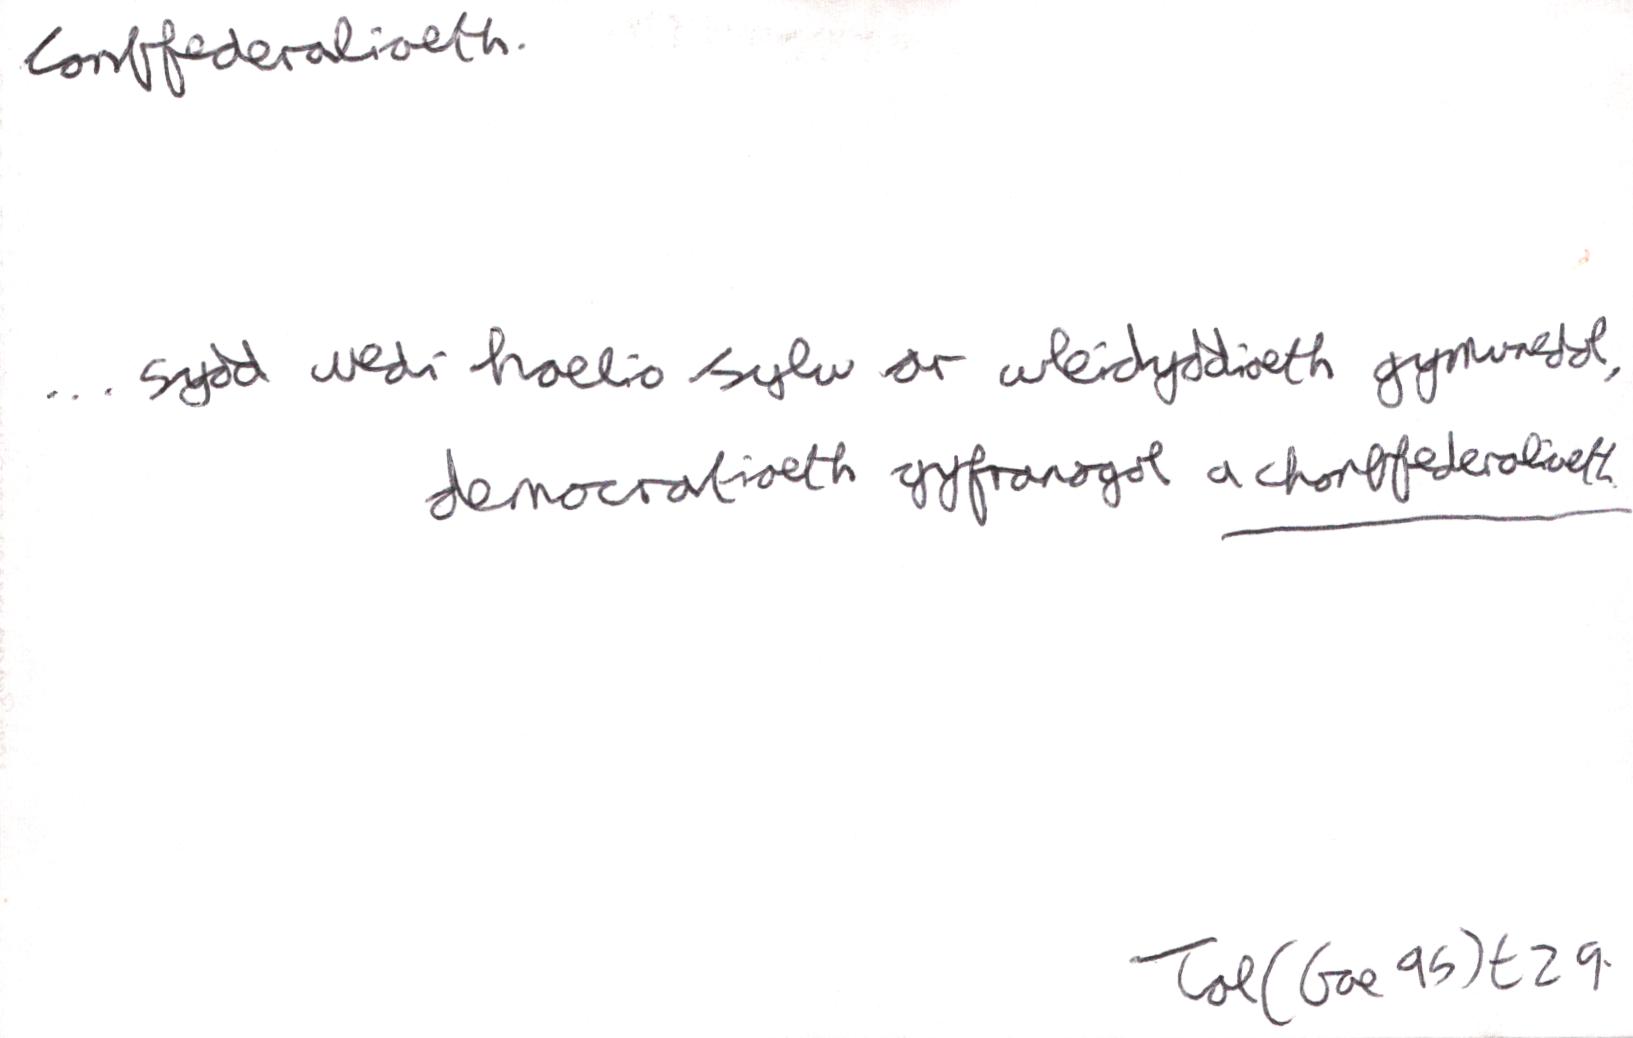 Conffederaliaeth.
... sydd wedi hoelio sylw ar wleidyddiaeth gymunedol,
democratiaeth gyfranogol a chonffederaliaeth
Tal (Gae 95) t29.